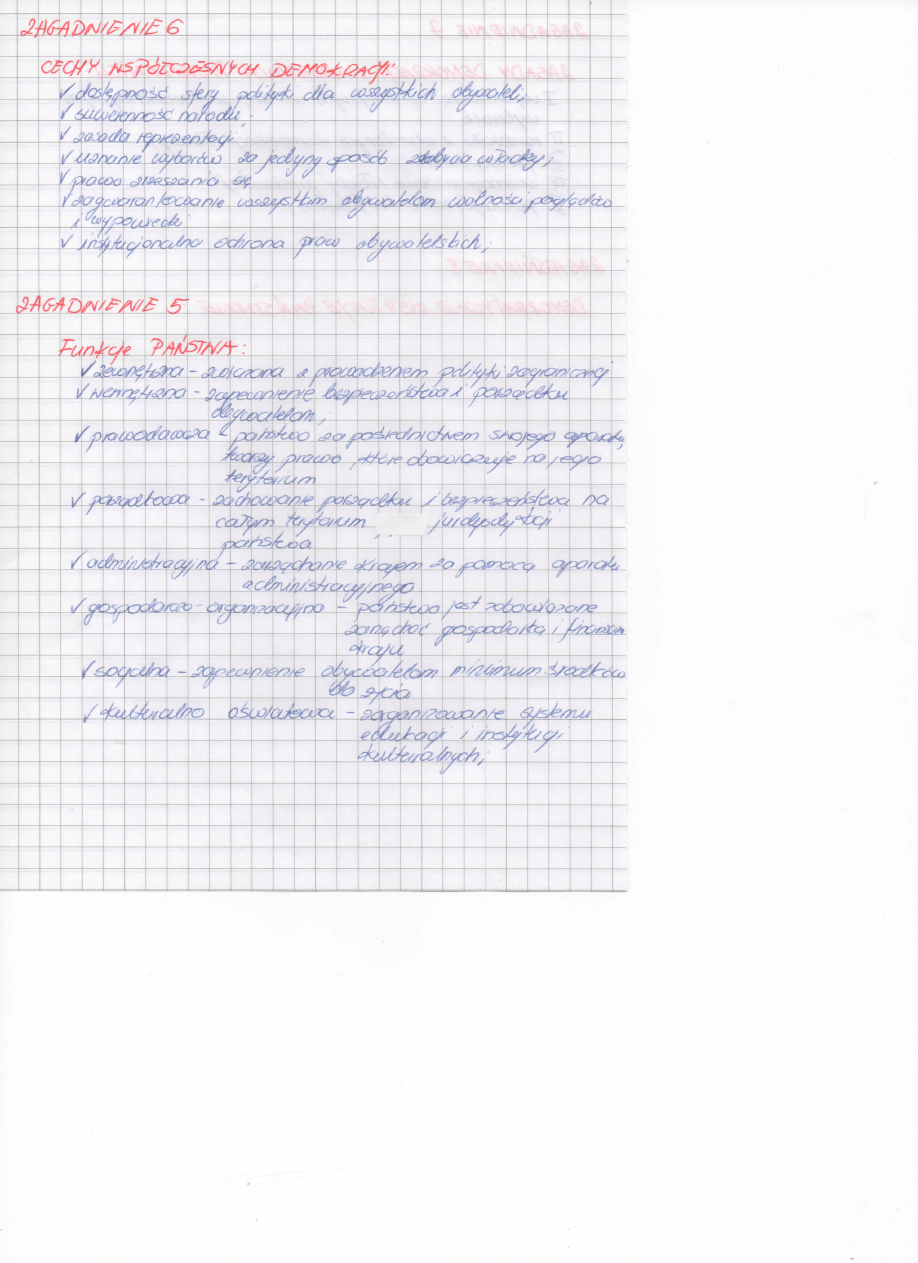 ZAGADNIENIE 6
CECHY WSPÓŁCZESNYCH DEMOKRACJI:
✓ dostępność sfery polityki dla wszystkich obywateli;
✓ suwerenność narodu;
✓ zasada reprezentacji
✓ uznanie wyborów za jedyny sposób zdobycia władzy;
✓ prawo zrzeszania się
✓ zagwarantowanie wszystkim obywatelom wolności poglądów
i wypowiedzi
✓ instytucjonalna ochrona praw obywatelskich;
ZAGADNIENIE 5
Funkcje PAŃSTWA:
✓ zewnętrzna - związana z prowadzeniem polityki zagranicznej
✓ wewnętrzna - zapewnienie bezpieczeństwa i porządku
obywatelom;
✓ prawodawcza - państwo za pośrednictwem swojego aparatu,
tworzy prawo, które obowiązuje na jego
terytorium
✓ porządkowa - zachowanie porządku i bezpieczeństwa na
całym terytorium
państwa
✓ administracyjna - zarządzanie krajem za pomocą aparatu
administracyjnego
✓ gospodarczo - organizacyjna - państwo jest zobowiązane
zarządzać gospodarką i finansami
kraju
✓ socjalna - zapewnienie obywatelom minimum środków
do życia
✓ kulturalno oświatowa - zorganizowanie systemu
edukacji i instytucji
kulturalnych;